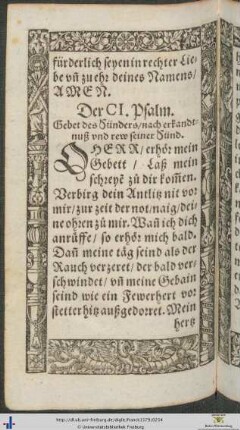 fürderlich seyen in rechter Lie-
be vñ zu ehr deines Namens/
AMEN.
Der CI. Psalm.
Gebet des Sünders/nach erkandt-
nuß vnd rew seiner Sünd.
O HERR/erhör mein
Gebett / Laß mein
schreyẽ zů dir kom̃en.
Verbirg dein Antlitz nit vor
mir/zur zeit der not/naig/dei-
ne ohren zů mir. Wañ ich dich
anrüffe/ so erhör mich bald.
Dañ meine täg seind als der
Rauch verzeret/der bald ver-
schwindet/ vñ meine Gebain
seind wie ein Fewerhert vor
stetter hitz außgedorret. Mein
hertz
© Universitätsbibliothek Freiburg